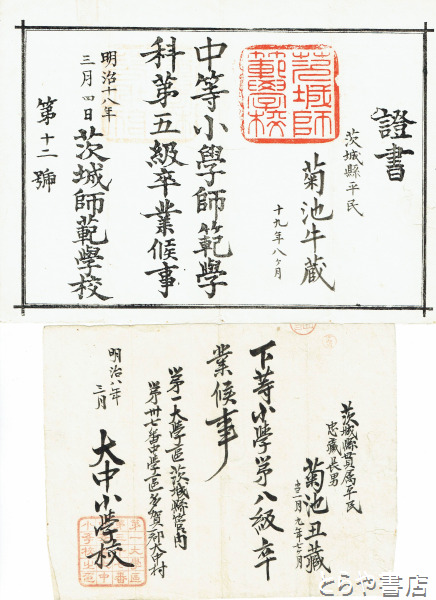 證書
茨城縣平民
菊池牛蔵
十九年八ヶ月
中等小學師範學
科第五級卒業候事
明治十八年
三月四日
茨城師範學校
第十二號
茨城師
範學校
茨城縣貫属平民
忠蔵長男
菊池丑蔵
下等小學第八級卒
業候事
第一大學區茨城縣管内
第卅七番中學區多賀郡大中村
明治八年
三月
大中小學校
とらや書店